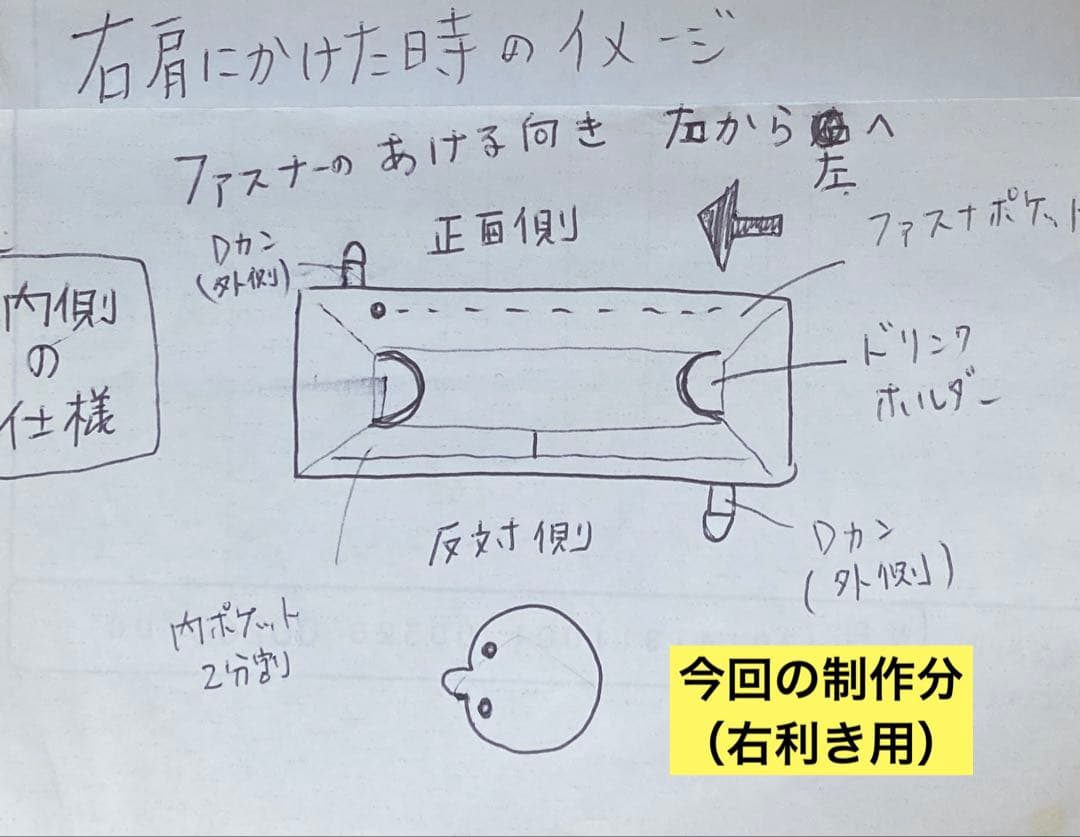 右肩にかけた時のイメージ
ファスナーのあける向き 右から左へ
正面側
Dカン
(外側)
ファスナポケット
内側
の
仕様
ドリンク
ホルダー
反対側
Dカン
(外側)
内ポケット
2分割
今回の制作分
(右利き用)